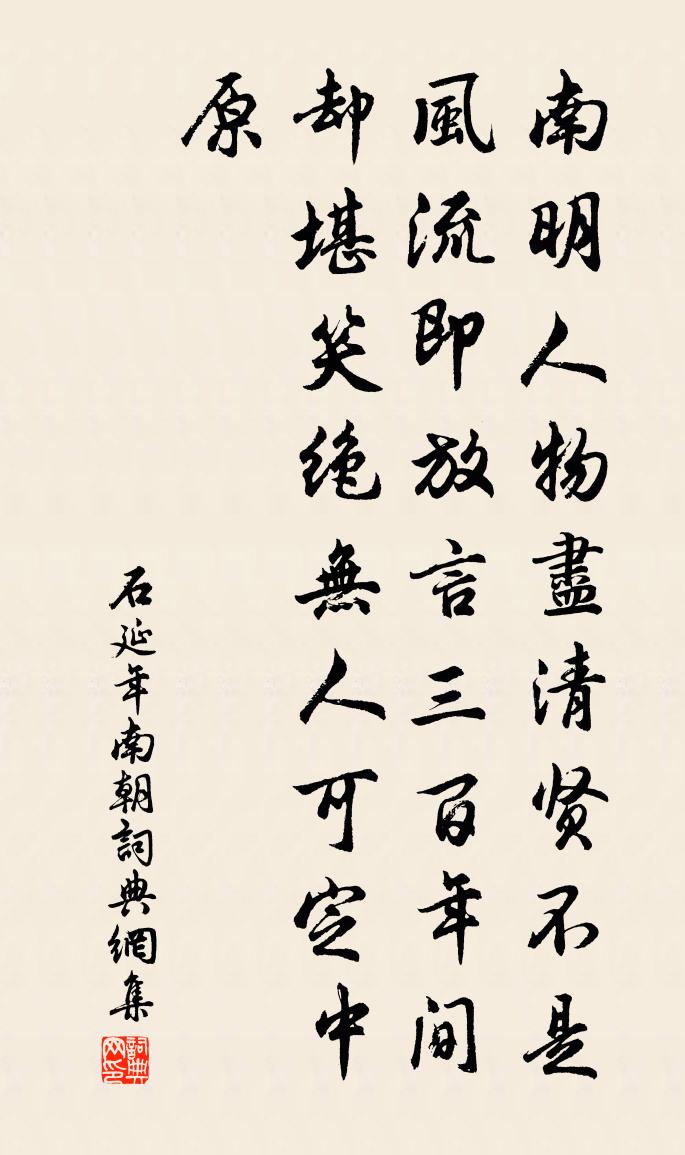 南明人物盡清贤不是
風流即放言三百年间
却堪笑绝無人可定中
原
石延年南朝詞典網集
詞典网印